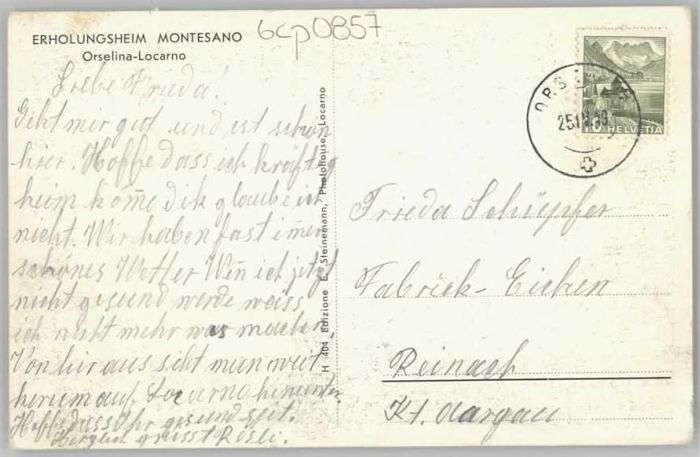 6cp0857
ERHOLUNGSHEIM MONTESANO
Orselina-Locarno
Liebe Frieda!
Geht mir gut und ist schön
hier. Hoffe dass ich kräftig
heim kome dik glaube ich
nicht. Wir haben fast imer
schönes Wetter Wen ich jetzt
nicht gesund werde weiss
ich nicht mehr was machen.
Von hier aus seht man weit
herum auf Locarno hinunter.
Hoffe dass Ihr gesund seit.
Herzlich grüsst Rösli.
H 404 Edizione E. Steinemann, Photohouse, Locarno
ORSELINA
10 HELVETIA
Frieda Schüpfer
Fabrick-Eichen
Reinach
Kt. Aargau